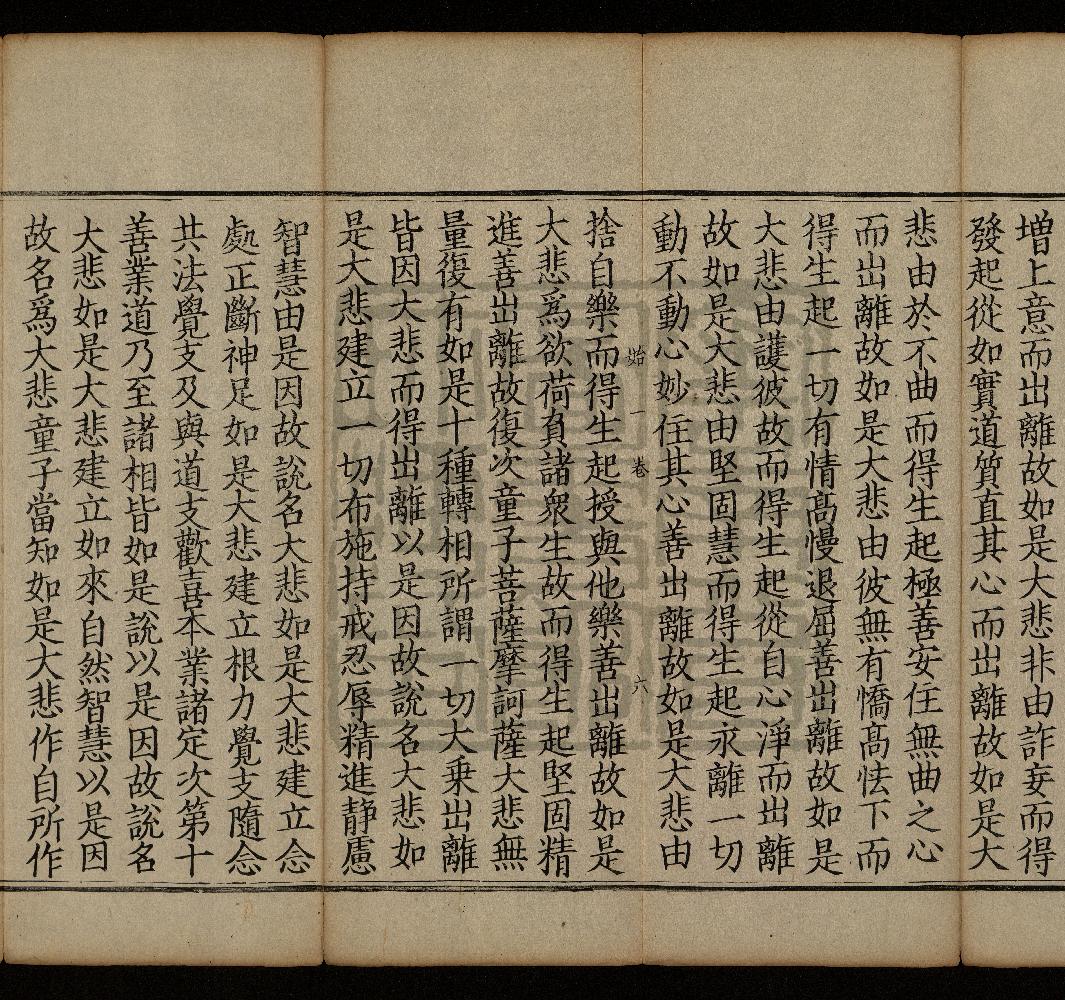 增上意而出離故如是大悲非由詐妄而得
發起從如實道質直其心而出離故如是大
悲由於不曲而得生起極善安住無曲之心
而出離故如是大悲由彼無有憍高怯下而
得生起一切有情高慢退屈善出離故如是
大悲由護彼故而得生起從自心淨而出離
故如是大悲由堅固慧而得生起永離一切
動不動心妙住其心善出離故如是大悲由
始 一 卷 六
捨自樂而得生起授與他樂善出離故如是
大悲爲欲荷負諸衆生故而得生起堅固精
進善出離故復次童子菩薩摩訶薩大悲無
量復有如是十種轉相所謂一切大乘出離
皆因大悲而得出離以是因故說名大悲如
是大悲建立一切布施持戒忍辱精進静慮
智慧由是因故說名大悲如是大悲建立念
處正斷神足如是大悲建立根力覺支隨念
共法覺支及與道支歡喜本業諸定次第十
善業道乃至諸相皆如是說以是因故說名
大悲如是大悲建立如來自然智慧以是因
故名爲大悲童子當知如是大悲作自所作